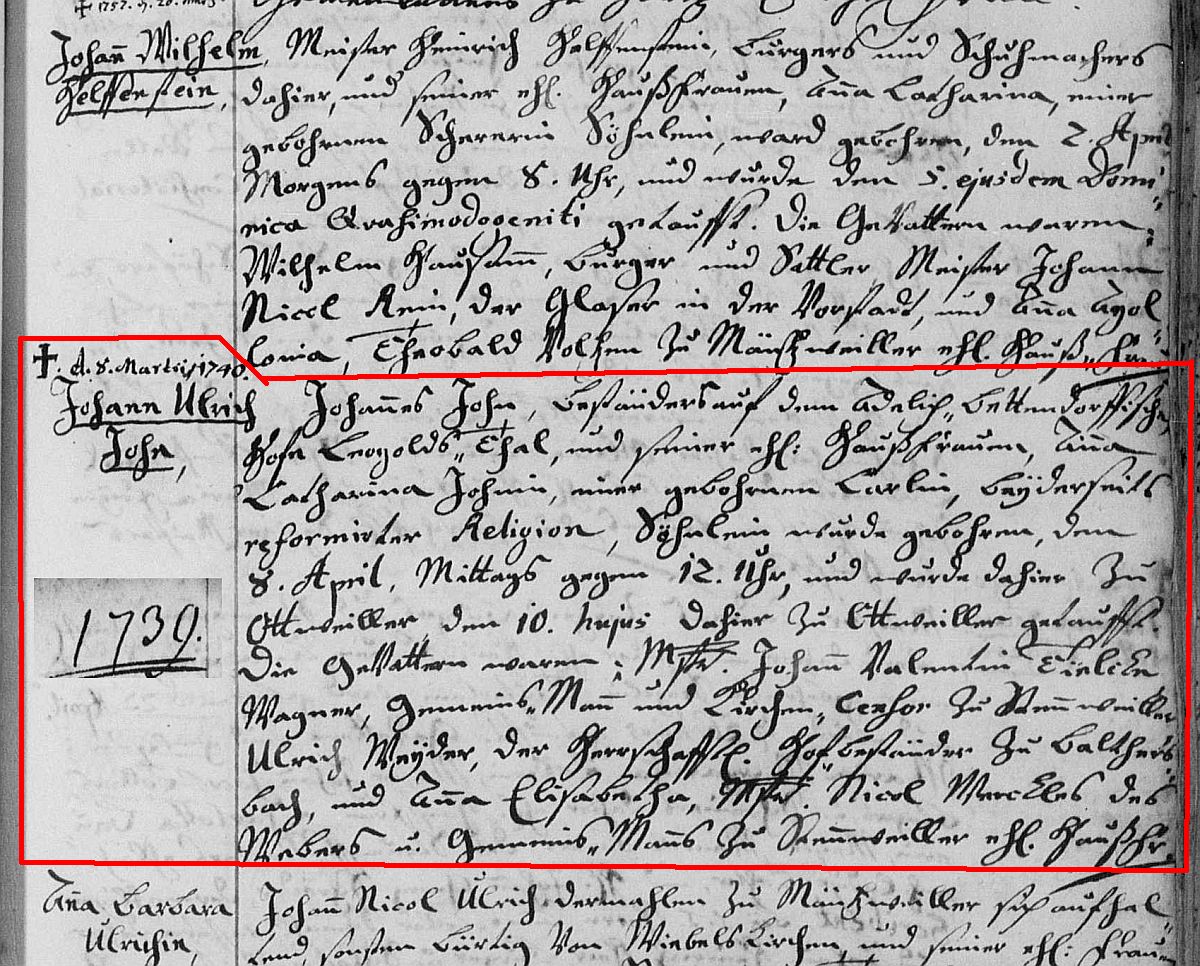 ✝ 1757. d. 20.
Johann Wilhelm
Helffenstein,
Meister Heinrich Helffenstein, Burgers und Schuhmachers
dahier, und seiner ehl. Haußfrauen, Anna Catharina, einer
gebohrnen Schererin Söhnlein, ward gebohren, den 2. April
Morgens gegen 8. Uhr, und wurde den 5. ejusdem Domi-
nica Quasimodogeniti getaufft. Die Gevattern waren:
Wilhelm Haußam, Burger und Sattler Meister Johann
Nicol Rein, der Glaser in der Vorstadt, und Anna Apol-
lonia, Theobald Volzen zu Mäintzweiller ehl. Hauß-Fr.
✝. d. 8. Martij 1740.
Johann Ulrich
John,
1739.
Johannes John, Beständers auf dem Adelich-Bettendorffischen
Hofe Leopolds-Thal, und seiner ehl: Haußfrauen, Anna
Catharina Johnin, einer gebohrnen Carlin, beyderseits
reformirter Religion, Söhnlein wurde gebohren, den
8. April, Mittags gegen 12. Uhr, und wurde dahier zu
Ottweiller den 10. hujus dahier zu Ottweiller getaufft.
Die Gevattern waren: Mstr. Johann Valentin Tielcke
Wagner, Gemeins-Mann und Kirchen-Censor zu Stennweiller
Ulrich Weyder, der Herrschafftl. Hofbeständer zu Balthers-
bach, und Anna Elisabetha, Mstr. Nicol Merckles des
Webers u. Gemeins-Manns zu Stennweiller ehl. Haußfr.
Anna Barbara
Ulrichin,
Johann Nicol Ulrich dermahlen zu Mäintzweiller sich aufhal-
tend, sonsten bürtig von Wiebelskirchen, und seiner ehl: Frauen